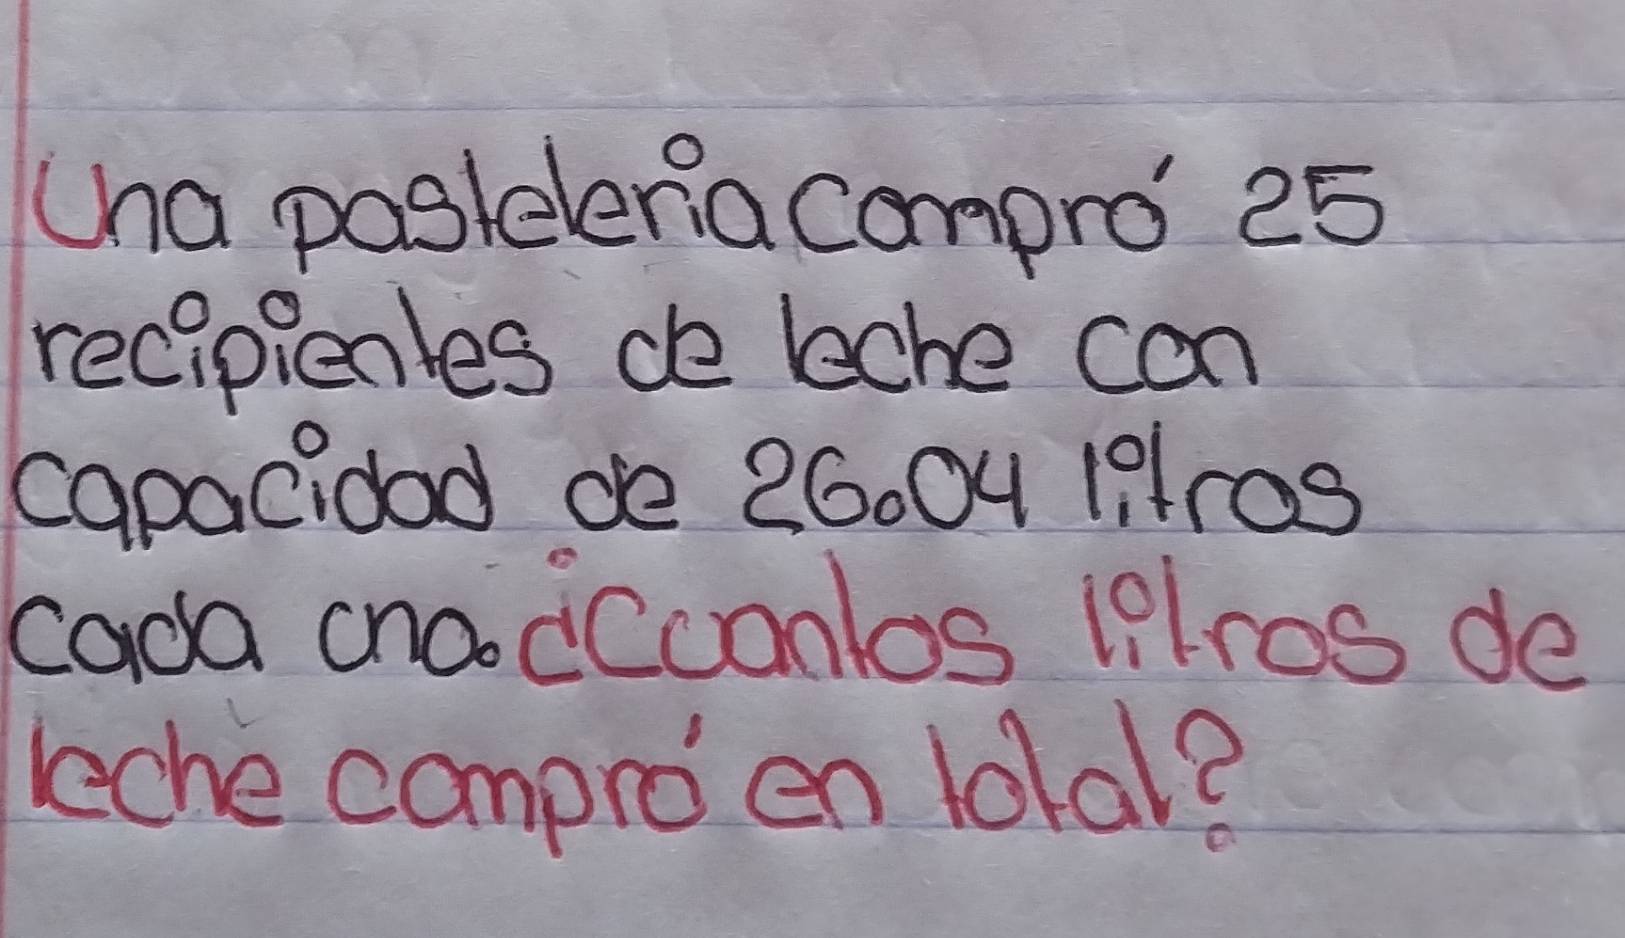 Una pasteleria compró 25
recipientes de leche con
capacidad de 26.04 litros
cada uno. ¿Cuantos litros de
leche compró en total?